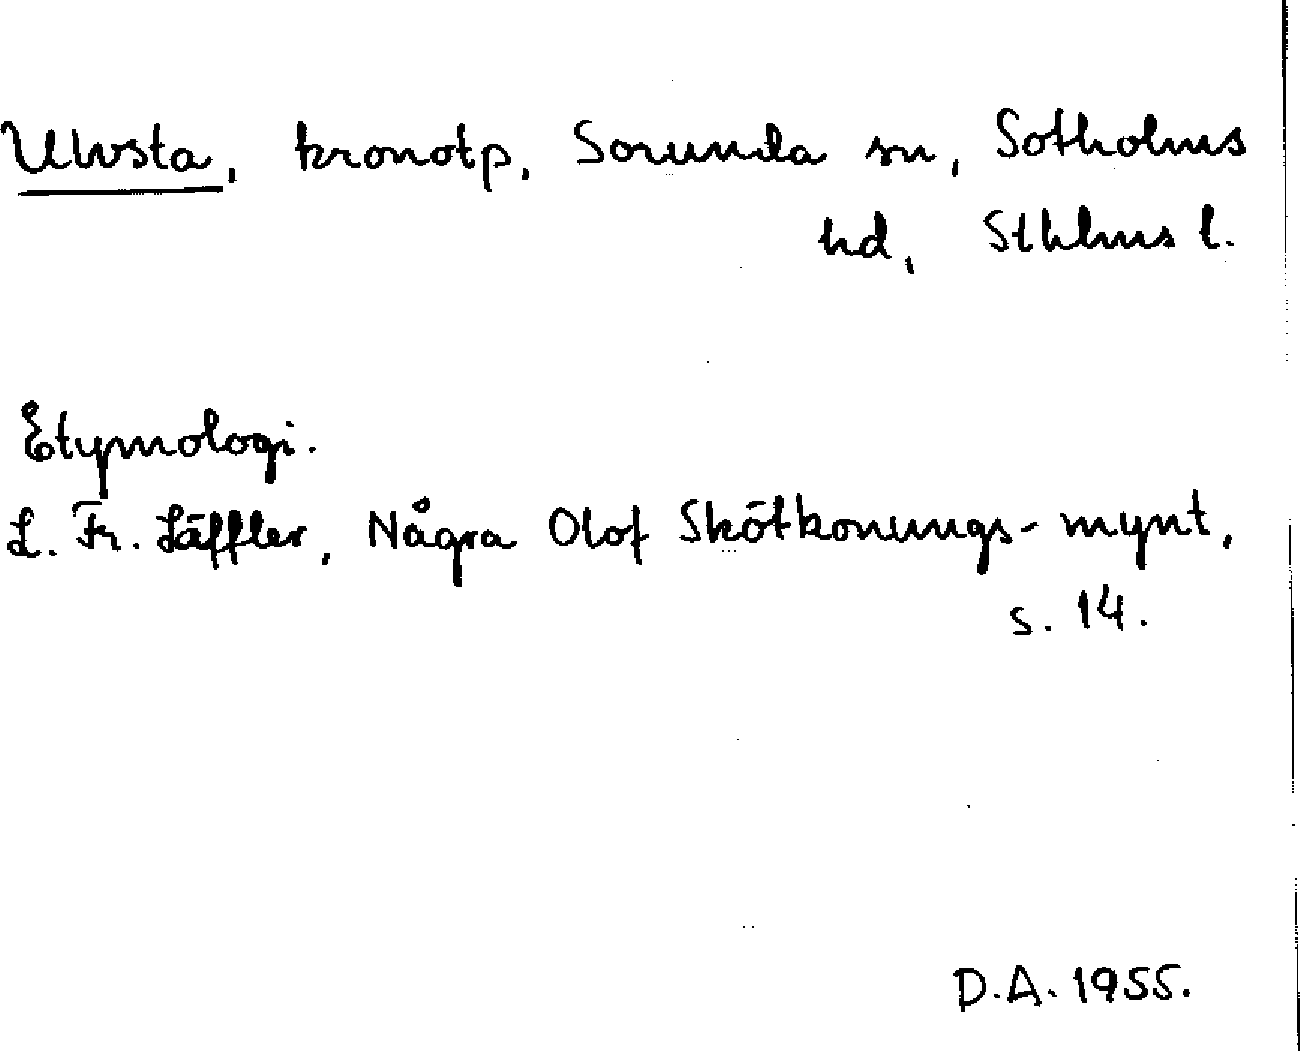 Ulvsta, kronotp, Sorunda sn, Sotholms
hd, Sthlms l.
Etymologi.
L. Fr. Läffler, Några Olof Skötkonungs-mynt,
s. 14.
D.A. 1955.